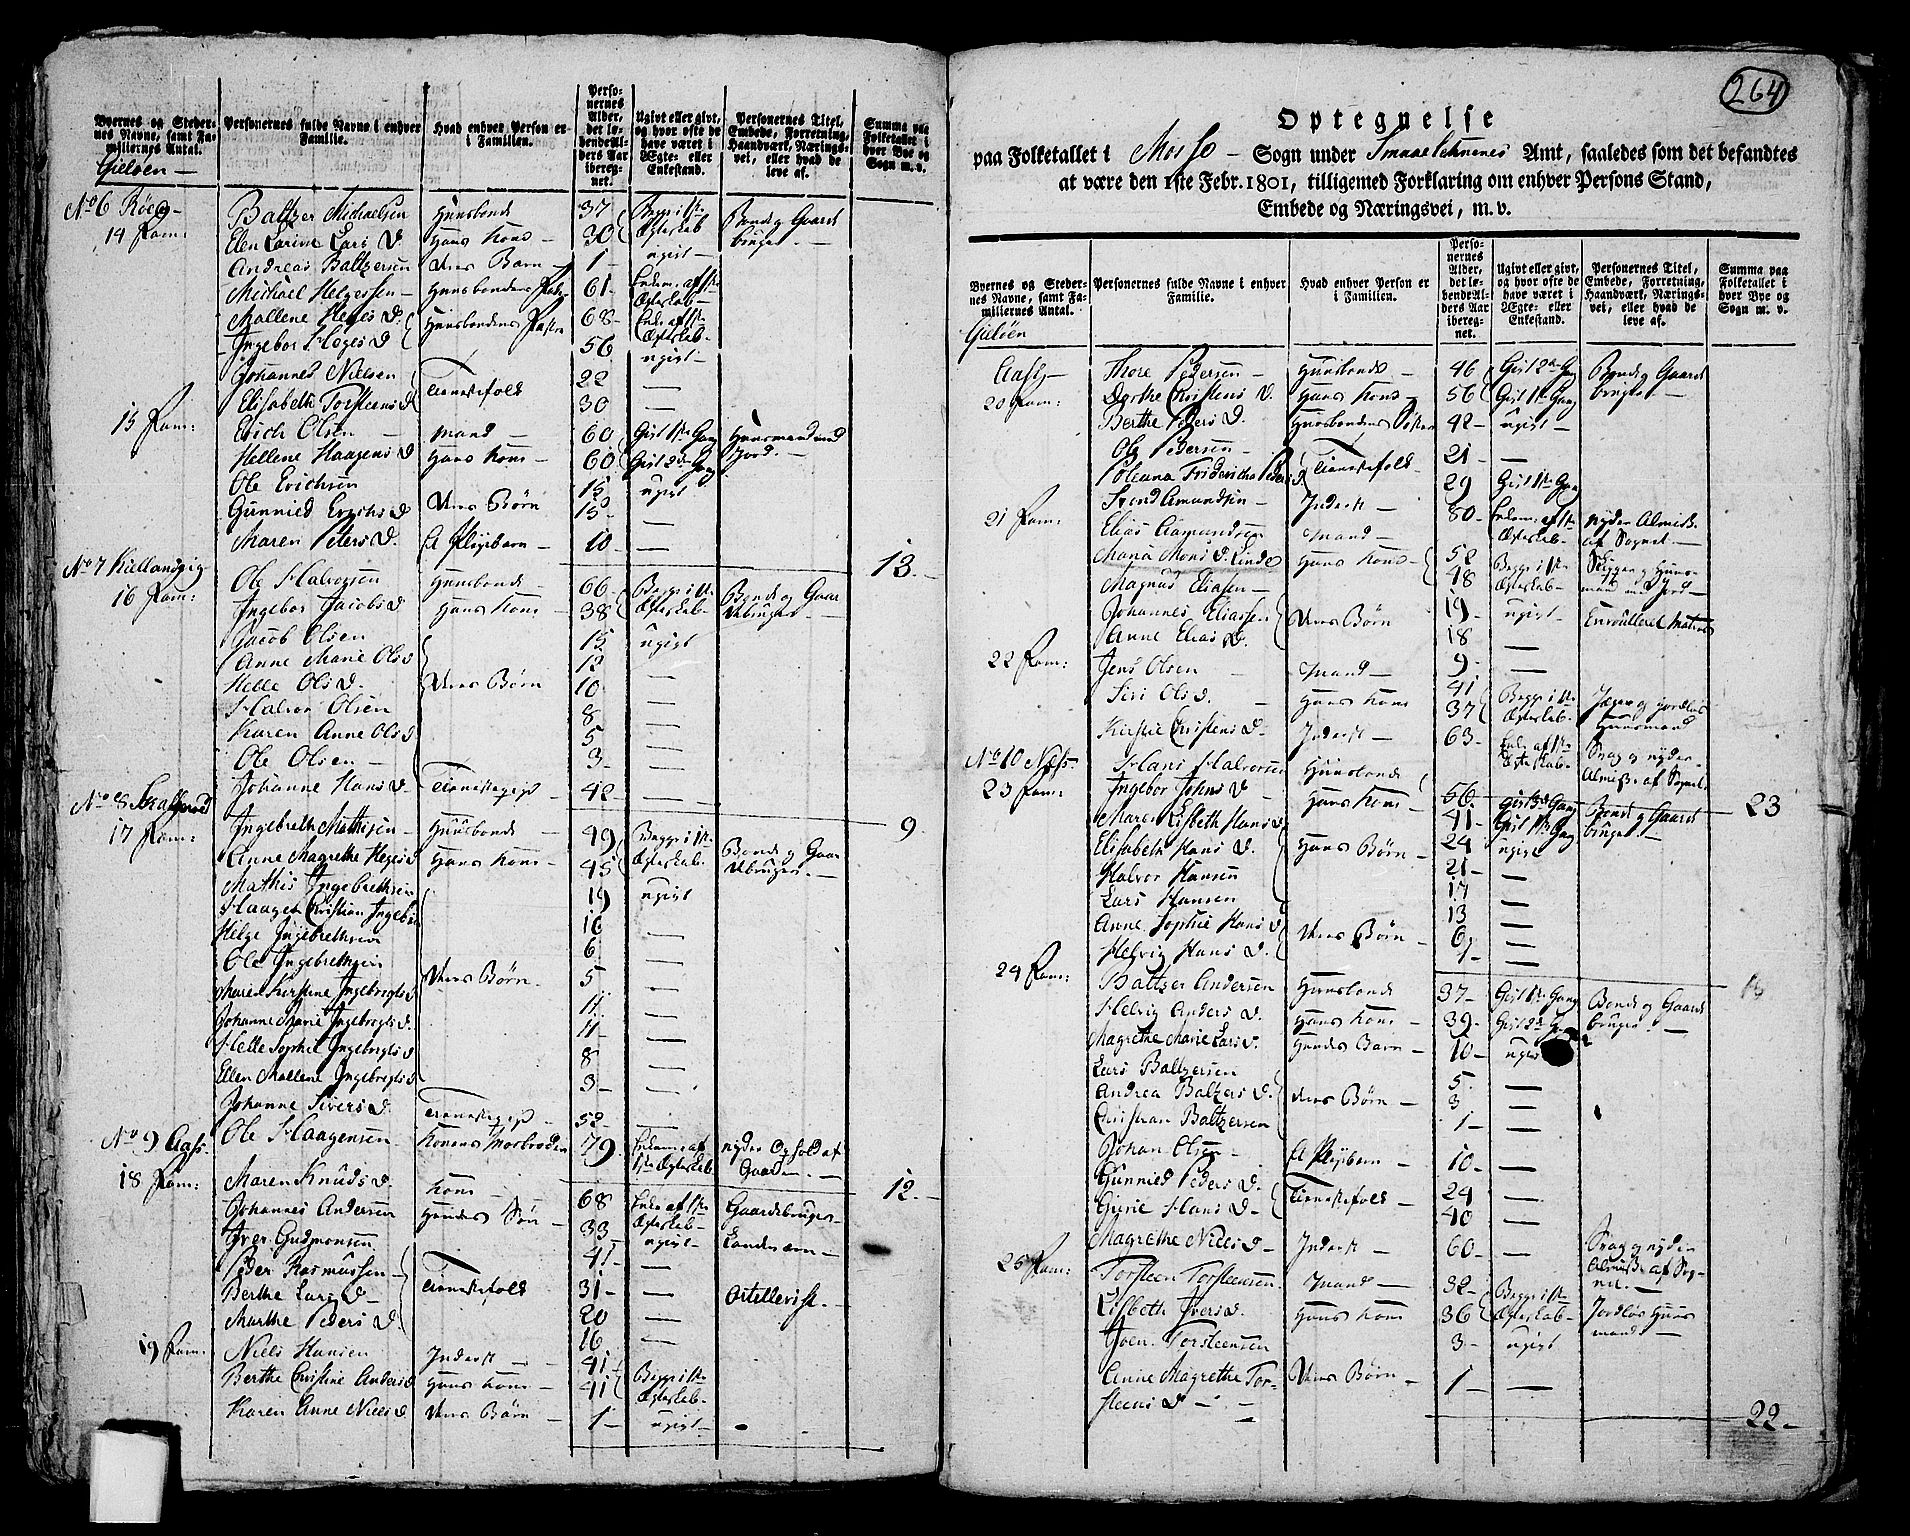 Byernes og Steder-
nes Navne, samt Fa-
miliernes Antal.
Personernes fulde Navne i enhver
Familie.
Hvad enhver Person er
i Familien.
Perso-
nernes
Alder,
det lø-
bende Al-
ders Aar
iberegnet.
Ugivt eller givt,
og hvor ofte de
have været i
Ægte- eller
Enkestand.
Personernes Titel,
Embede, Forretning,
Haandværk, Nærings-
vei, eller hvad de
leve af.
Summa paa
Folketallet i
hver Bye og
Sogn m. v.
Gieløen
No 6 Røeg
14 Fam:
Baltzer Michaelsen Huusbonde 37 Begge i 1ste Bonde og Gaard
Elen Larine Lars D. Hans Kone 30 Ægteskab bruger
Andreas Baltzersen Deres Barn 1 ugivt
Michael Helgersen Huusbondens Fader 61 Enkem: af 1ste
Mallene Heges D. Huusbondens 68 Enke af 1ste
Ingebor Heges D 56 ugivt
Johannes Nielsen Tienestefolk 22 —
Elisabeth Torsteens D 30 —
15 Fam:
Erich Olsen Mand 60 Givt 1ste Gang Huusmand med
Hellene Haagens D Hans Kone 60 Givt 2den Gang Jord
Ole Erichsen 15 ugivt
Gunnild Erichs D Deres Børn 15
Maren Peters D. Et Pleiebarn 10 —
13
No 7 Kiellandvig
16 Fam:
Ole Halvorsen Huusbonde 66 Begge i 1ste Bonde og Gaar
Ingebor Jacobs D Hans Kone 38 Ægteskab dbruger
Jacob Olsen 15 ugivt
Anne Marie Ols D 12 —
Helle Ols D. Deres Børn 10 —
Halvor Olsen 8 —
Karen Anne Ols D 5 —
Ole Olsen 3 —
Johanne Hans D Tienestepige 42 —
9
No 8
17 Fam:
Ingebreth Mathisen Huusbonde 49 Begge i 1ste Bonde og Gaar
Anne Magrethe Heges D Hans Kone 45 Ægteskab dbruger
Mathis Ingebrethsen 19 ugivt
Haagen Christian Ingebr 16 —
Helge Ingebrethsen 6 —
Ole Ingebrethsen 5 —
Maren Kirstine Ingebregts D Deres Børn 11 —
Johanne Marie Ingebregts D. 11 —
Helle Sophie Ingebregts D 8 —
Ellen Mallene Ingebregts D 3 —
Johanne Sivers D. Tienestepige 52 —
Ole Haagensen Konens Morbroder 79 Enkem: af nyder Ophold af
1ste Ægteskab Gaarden
12
No 9 Aass
18 Fam:
Maren Knuds D. Kone 68 Enke af 1ste Gaardebruger
Johannes Andersen Hendes Søn 33 ugivt
Iver Gudmonsen 41 —
Peder Rasmussen Tienestefolk 31 —
Berthe Lars D 20 —
Marthe Peders D 16 —
19 Fam:
Niels Hansen Inderst 41 Begge i 1ste
Berthe Christine Anders D Hans Kone 41 Ægteskab
Karen Anne Niels D. Deres Børn 1 ugivt
264
Optegnelse
paa Folketallet i Moss Sogn under Smaalehnenes Amt, saaledes som det befandtes
at være den 1ste Febr. 1801, tilligemed Forklaring om enhver Persons Stand,
Embede og Næringsvei, m. v.
Byernes og Steder-
nes Navne, samt Fa-
miliernes Antal.
Personernes fulde Navne i enhver
Familie.
Hvad enhver Person er
i Familien.
Perso-
nernes
Alder,
det lø-
bende Al-
ders Aar
iberegnet.
Ugivt eller givt,
og hvor ofte de
have været i
Ægte- eller
Enkestand.
Personernes Titel,
Embede, Forretning,
Haandværk, Nærings-
vei, eller hvad de
leve af.
Summa paa
Folketallet i
hver Bye og
Sogn m. v.
Gieløen
Aass
20 Fam:
Thore Pedersen Huusbonde 46 Givt 2den Gang Bonde og Gaard
Dorthe Christens D. Hans Kone 56 Givt 1ste Gang bruger
Berthe Peders D. Huusbondens Søster 42 ugivt
Ole Pedersen Tienestefolk 21 —
Oleana Fridericha Peders D 29 Givt 1ste Gang
Svend Amundsen Inderst 80 Enkem: af 1ste nyder Almisse
Ægteskab af Sognet
21 Fam:
Elias Aamundsen Mand 52 Begge i 1ste
Maria Mons D. Linde Hans Kone 48 Ægteskab mand med Jord
Magnus Eliasen 19 ugivt Enroulleret Matros
Johannes Eliassen Deres Børn 18 —
Anne Elias D. 9 —
22 Fam:
Jens Olsen Mand 41 Begge i 1ste Jæger og jordløs
Siri Ols D. Hans Kone 37 Ægteskab Huusmand
Kirstie Christens D. Inderst 63 Enke af 1ste Svag og nyder
Ægteskab Almisse af Sognet
23
No 10 Næss
23 Fam:
Hans Halvorsen Huusbonde 56 Givt 3de Gang Bonde og Gaard
Ingebor Johns D Hans Kone 41 Givt 1ste Gang bruger
Maren Lisbeth Hans D 24 ugivt
Elisabeth Hans D. Hans Børn 21 —
Halvor Hansen 17 —
Lars Hansen 13 —
Anne Sophie Hans D Deres Børn 6 —
Helvig Hans D.
24 Fam:
Baltzer Andersen Huusbonde 37 Givt 1ste Gang Bonde og Gaard
Helvig Anders D. Hans Kone 39 Givt 2den Gang bruger
Magrethe Marie Lars D. Hendes Barn 10 ugivt
Lars Baltzersen 5 —
Andrea Baltzers D Deres Børn 3 —
Christian Baltzersen 1 —
Johan Olsen Et Pleiebarn 10 —
Gunnild Peders D. Tienestefolk 24 —
Gurie Hans D 40 —
Magrethe Niels D Inderst 60 — Svag og nyder
Almisse af Sog-
net
25 Fam:
Torsteen Torsteensen Mand 32 Begge i 1ste
Lisbeth Ivers D. Hans Kone 36 Ægteskab Jordløs Huus
mand
Iver Torsteensen 3 ugivt
Anne Magrethe Tor- Deres Børn 1 —
steens D
22